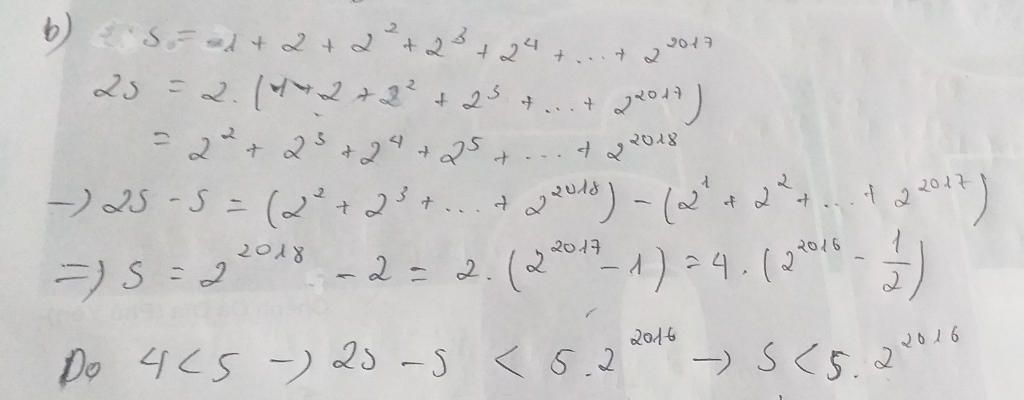 b) S = 1 + 2 + 2² + 2³ + 2⁴ + ... + 2²⁰¹⁷
2S = 2. (1 + 2 + 2² + 2³ + ... + 2²⁰¹⁷)
= 2² + 2³ + 2⁴ + 2⁵ + ... + 2²⁰¹⁸
→ 2S - S = (2² + 2³ + ... + 2²⁰¹⁸) - (2¹ + 2² + ... + 2²⁰¹⁷)
=> S = 2²⁰¹⁸ - 2 = 2. (2²⁰¹⁷ - 1) = 4. (2²⁰¹⁶ - 1/2)
Do 4 < 5 → 2S - S < 5.2²⁰¹⁶ → S < 5.2²⁰¹⁶